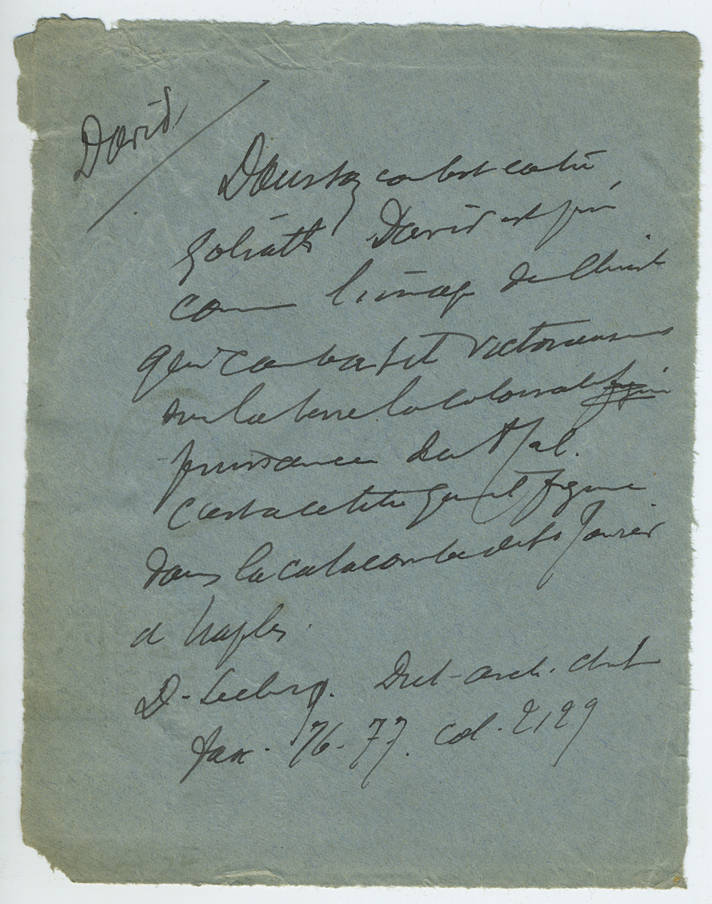 David
Dans son combat contre
Goliath David est pris
comme l'image du Christ
qui combattit victorieusement
sur la terre la colossale
puissance du Mal.
C'est à ce titre qu'il figure
dans la catacombe de St Janvier
de Naples.
D. Leclercq. Dict. arch. chrét
fasc. 76-77. col. 2129